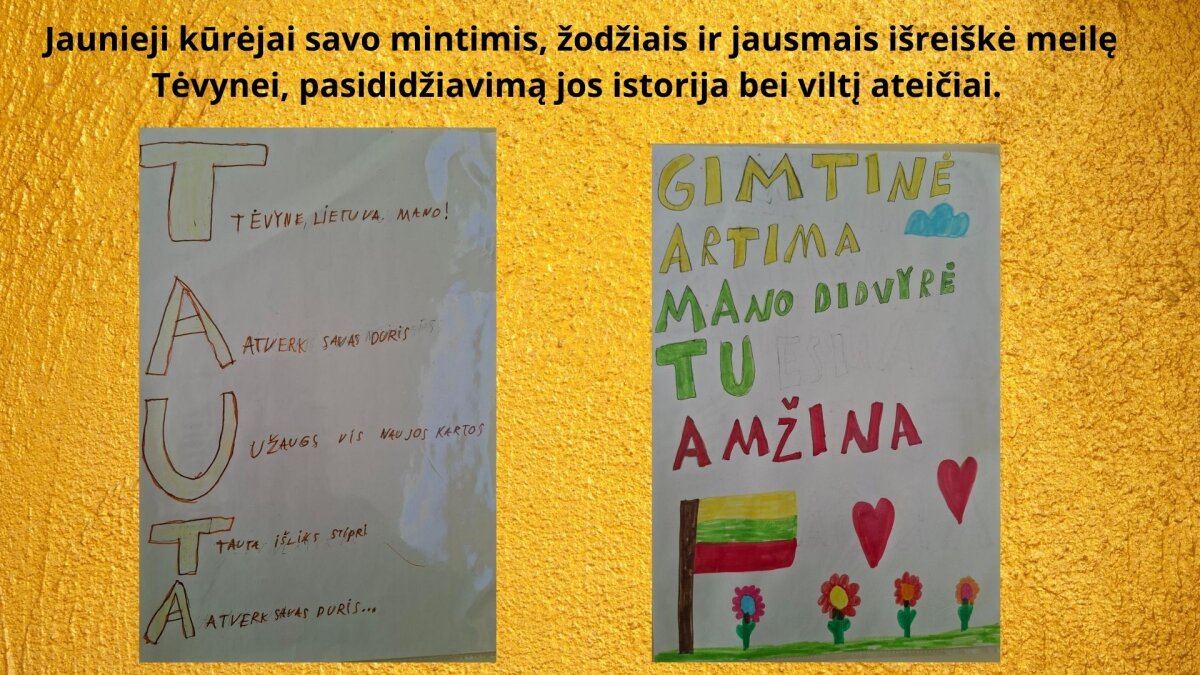 Jaunieji kūrėjai savo mintimis, žodžiais ir jausmais išreiškė meilę
Tėvynei, pasididžiavimą jos istorija bei viltį ateičiai.
T
TĖVYNE, LIETUVA MANO!
A
ATVERK SAVAS DURIS
U
UŽAUGS VIS NAUJOS KARTOS
T
TAUTA IŠLIKS STIPRI
A
ATVERK SAVAS DURIS...
GIMTINĖ
ARTIMA
MANO DIDVYRĖ
TU ESI
AMŽINA